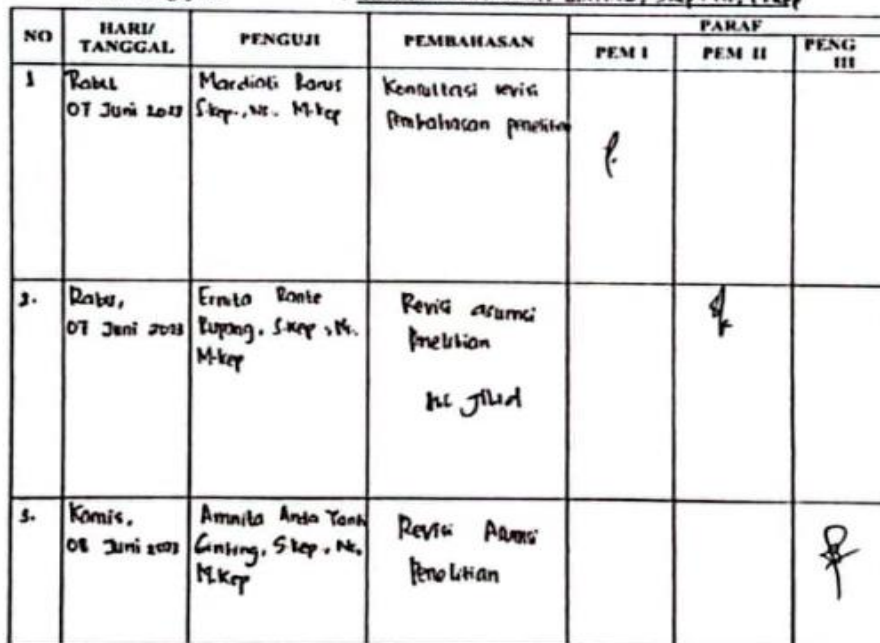 NO
HARI/
TANGGAL
PENGUJI
PEMBAHASAN
PARAF
PEM I
PEM II
PENG
III
1
Rabu
07 Juni 2023
Mardiati Barus
S.kep., Ns. M.kep
Konsultasi revisi
Pembahasan penelitian
2.
Rabu,
07 Juni 2023
Ernita Rante
Rupang, S.kep., Ns.
M.kep
Revisi asumsi
Penelitian
Jilid
3.
Kamis,
08 Juni 2023
Amnita Anda Yanti
Ginting, S.kep, Ns,
M.kep
Revisi Asumsi
Penelitian